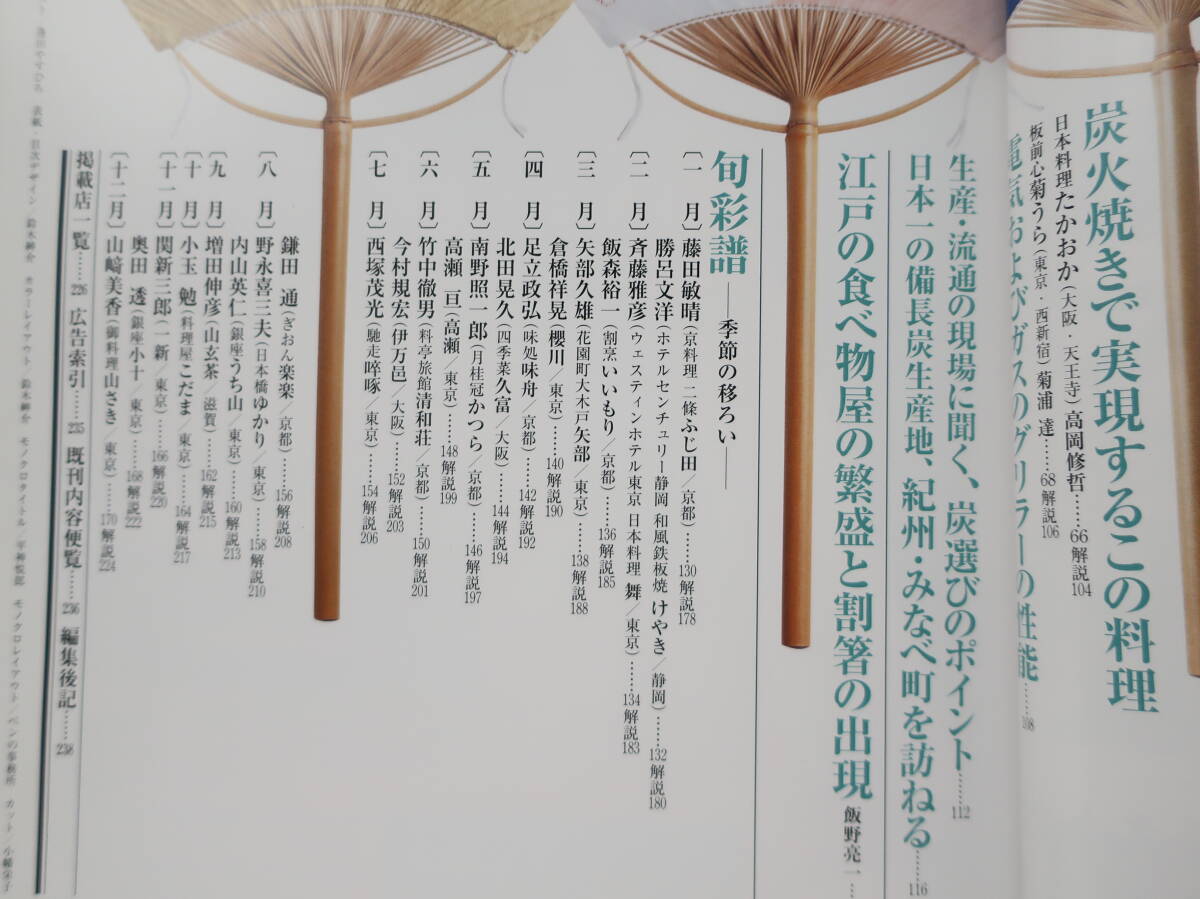 炭火焼きで実現するこの料理
日本料理たかおか（大阪・天王寺）高岡修哲……66解説104
板前心菊うら（東京・西新宿）菊浦 達……68解説106
電気およびガスのグリラーの性能……108
生産・流通の現場に聞く、炭選びのポイント……112
日本一の備長炭生産地、紀州・みなべ町を訪ねる……116
江戸の食べ物屋の繁盛と割箸の出現 飯野亮一…
旬彩譜――季節の移ろい――
〔一 月〕藤田敏晴（京料理 二條ふじ田／京都）……130解説178
勝呂文洋（ホテルセンチュリー静岡 和風鉄板焼 けやき／静岡）……132解説180
〔二 月〕斉藤雅彦（ウェスティンホテル東京 日本料理 舞／東京）……134解説183
飯森裕一（割烹いいもり／京都）……136解説185
〔三 月〕矢部久雄（花園町大木戸矢部／東京）……138解説188
倉橋祥晃（櫻川／東京）……140解説190
〔四 月〕足立政弘（味処味舟／京都）……142解説192
北田晃久（四季菜久富／大阪）……144解説194
〔五 月〕南野照一郎（月桂冠かつら／京都）……146解説197
高瀬 亘（高瀬／東京）……148解説199
〔六 月〕竹中徹男（料亭旅館清和荘／京都）……150解説201
今村規宏（伊万邑／大阪）……152解説203
〔七 月〕西塚茂光（馳走啐啄／東京）……154解説206
鎌田 通（ぎおん楽楽／京都）……156解説208
〔八 月〕野永喜三夫（日本橋ゆかり／東京）……158解説210
内山英仁（銀座うち山／東京）……160解説213
〔九 月〕増田伸彦（山玄茶／滋賀）……162解説215
〔十 月〕小玉 勉（料理屋こだま／東京）……164解説217
〔十一月〕関新三郎（一新／東京）……166解説220
奥田 透（銀座小十／東京）……168解説222
〔十二月〕山﨑美香（御料理山さき／東京）……170解説224
掲載店一覧……226 広告索引……235 既刊内容便覧……236 編集後記……238
表紙・目次デザイン／鈴木 カラーレイアウト／鈴木 モノクロタイトル／平 モノクロレイアウト／ペンの事務所 カット／小幡栄子